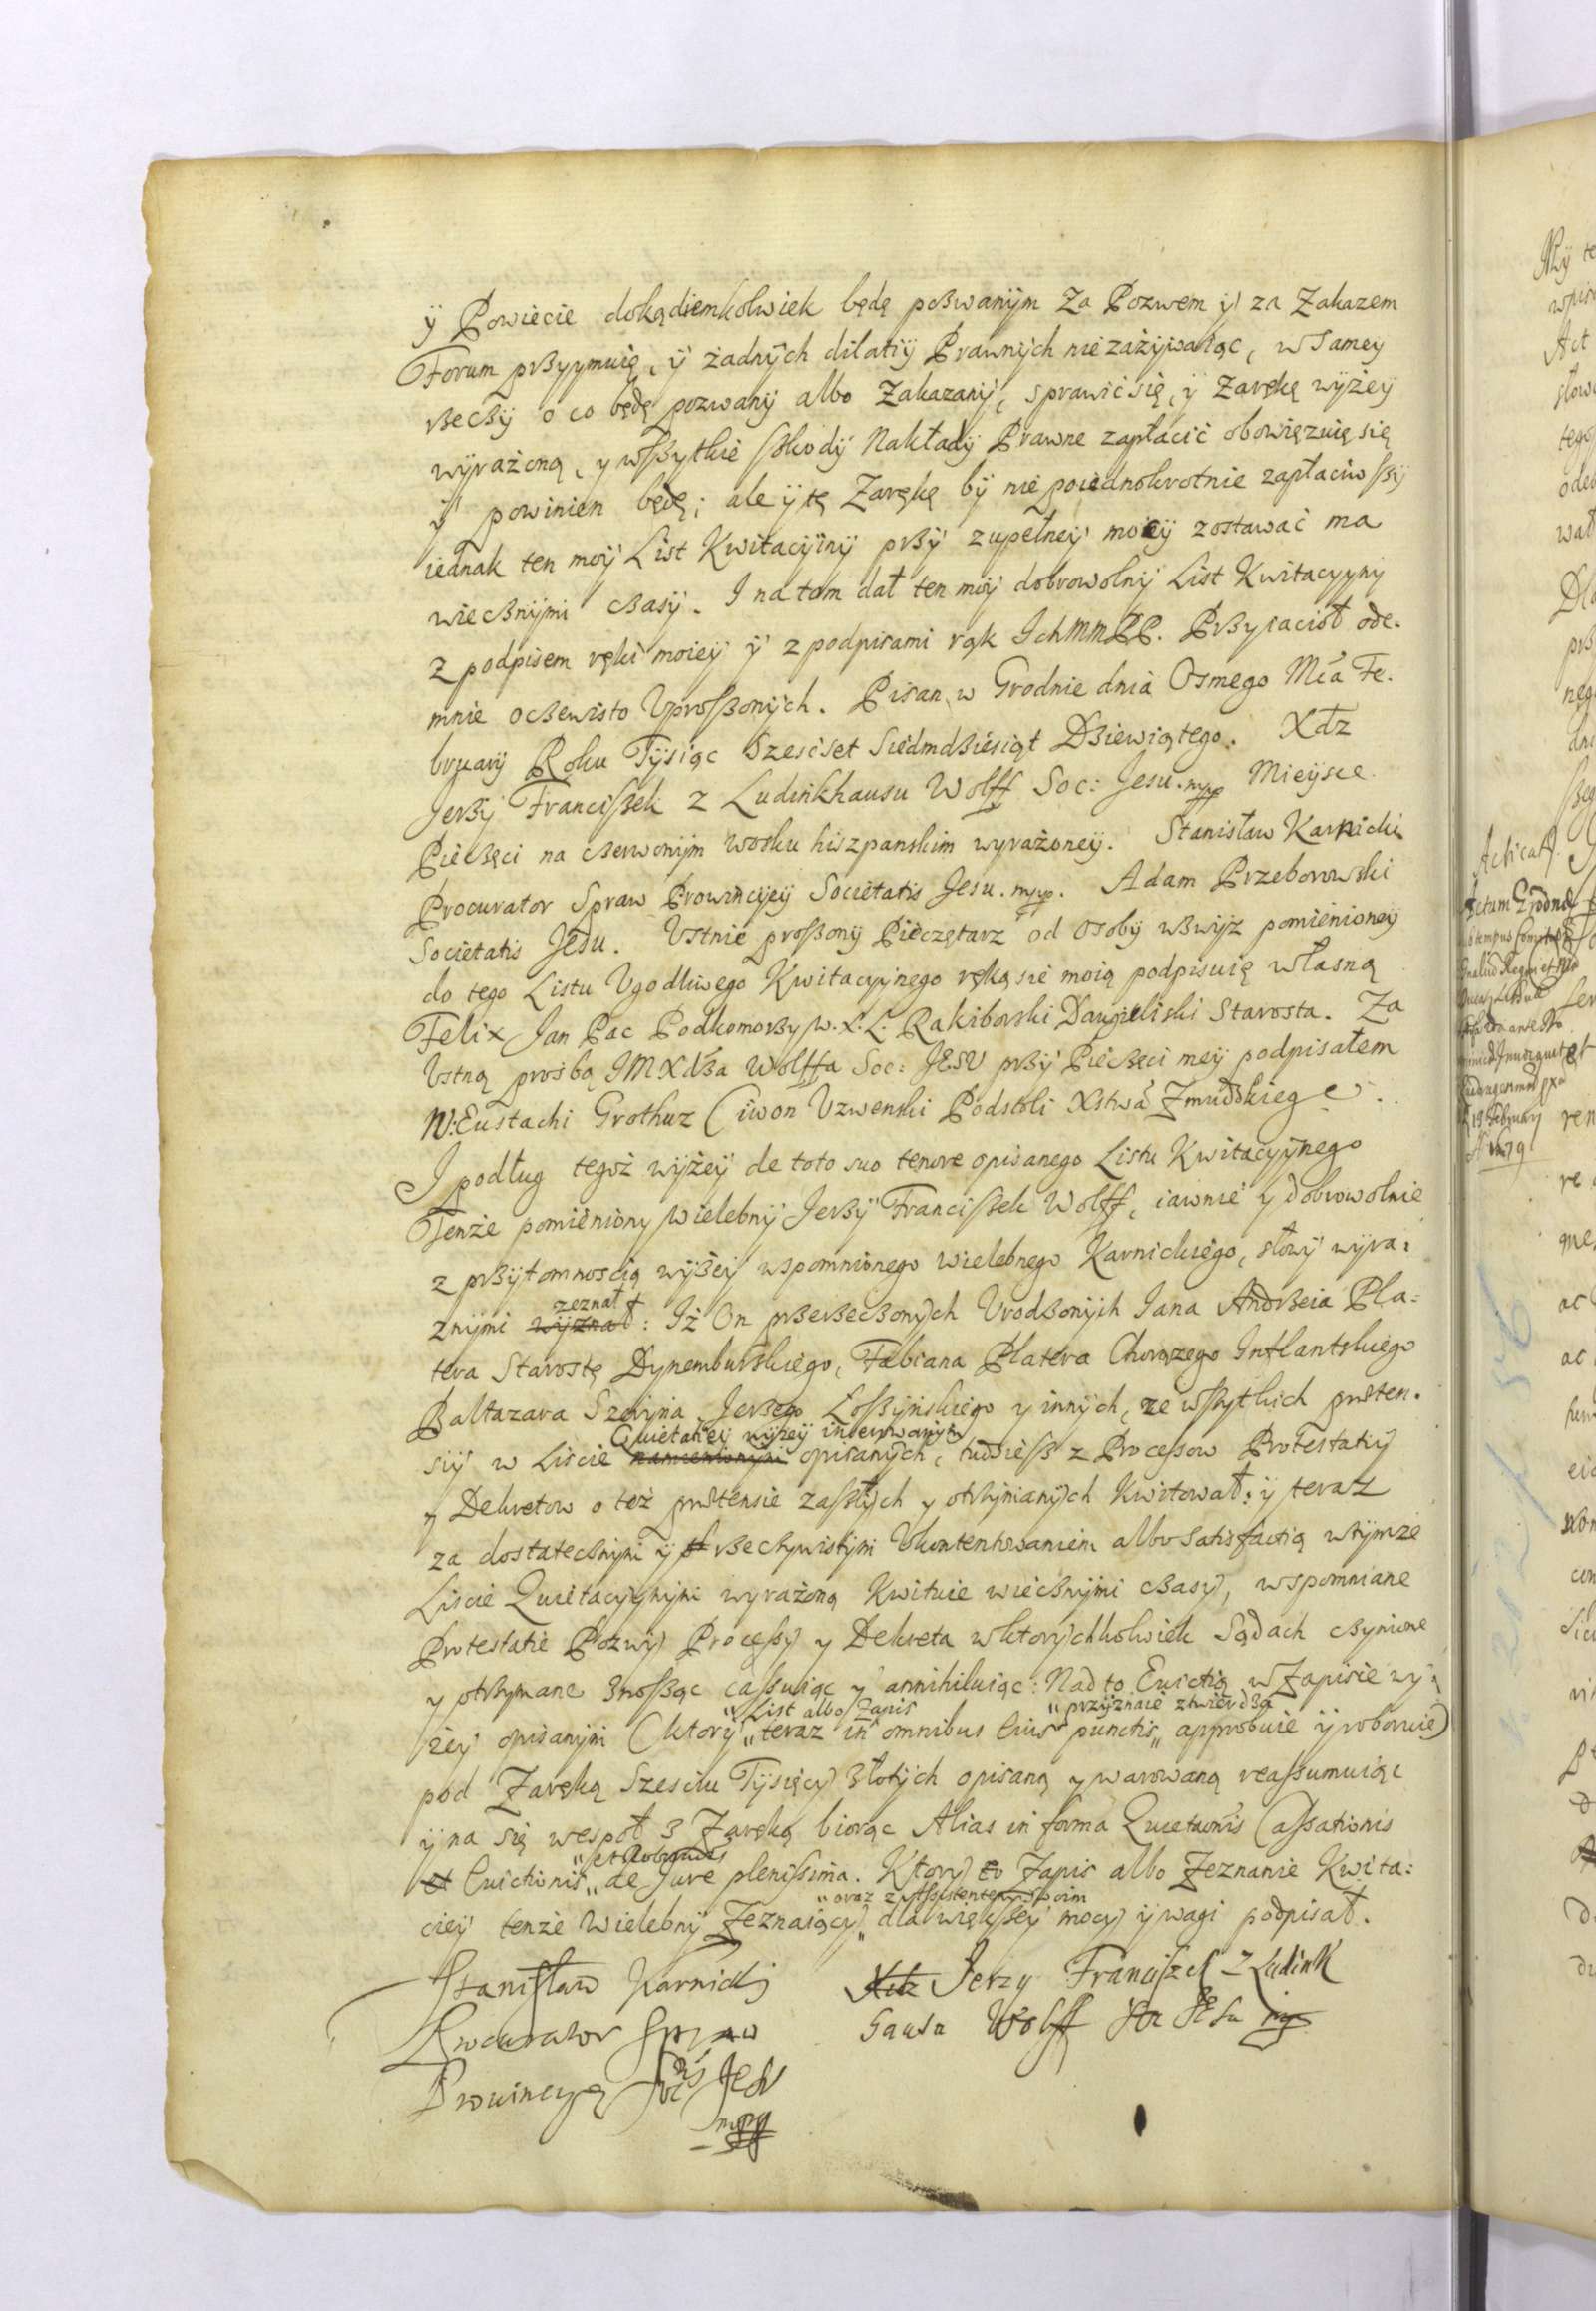 ÿ Powiecie dokądiemkolwiek będę poßwanÿm Za Pozwem ÿ za Zakazem
Forum prßyymuię, ÿ żadnÿch dilatiÿ Prawnÿch nie zażÿwaiąc, w samey
rßecßÿ o co będę pozwanÿ albo Zakazanÿ, sprawić się, ÿ Zarękę wÿżey
wÿrażoną, y wßytkie ßkodÿ Nakładÿ Prawne zapłacić obowięzuię się
ÿ powinien będę; ale ÿ tę Zarękę bÿ nie poiednokrotnie zapłaciwßÿ
iednak ten moÿ List Kwitacÿinÿ prßÿ zupełneÿ mocÿ zostawać ma
wiecßnÿmi cßasÿ. I na tom dał ten mÿ dobrowolnÿ List Kwitacyyny
z podpisem ręki moieÿ ÿ z podpisami rąk IchmmPP. Prßyiaciół ode.
mnie ocßewisto Uproßonÿch. Pisan w Grodnie dnia Osmego Mca Fe.
bruarÿ Roku Tÿsiąc Szescset Siedmdßiesiąt Dßiewiątego. Xdz
Jerßÿ Francißek z Ludinkhausu Wolff Soc: Jesu. mpp Mieÿsce
Piecßęci na cßerwonÿm wosku hiszpanskim wyrażoneÿ. Stanisław Karnicki
Procurator Spraw Prowincÿeÿ Societatis Jesu. mpp. Adam Przeborowski
Societatis Jesu. Ustnie proßonÿ Pieczętarz od osobÿ wßwÿż pomienioneÿ
do tego Listu Ugodliwego Kwitacyÿnego ręką sie moią podpisuię własną
Felix Jan Pac Podkomorßy w. x. L. Rakiborski Daugieliski Starosta. Za
Ustną proźbą IMXdßa Wolffa Soc: JESU prßÿ Piecßęci meÿ podpisałem
W: Eustachi Grothuz Ciwon Uzwenski Podstoli Xstwa Zmudskiego.
I podług tegoż wÿżeÿ de toto suo tenore opisanego Listu Kwitacyÿnego
Tenże pomieniony Wielebnÿ Jerßÿ Francißek Wolff, iawnie y dobrowolnie
z prßÿtomnoscią wÿżeÿ wspomnionego wielebnego Karnickiego, słowÿ wÿra:
zeznał
znÿmi wÿznał: Iż On prßerßecßonÿch Urodßonÿch Iana Andrßeia Pla:
tera Starostę Dynemburskiego, Fabiana Platera Chorązego Inflantskiego
Baltazara Szerÿna, Jerßego Łoßÿnskiego y innÿch, ze wßytkich prßten.
Quietatieÿ wÿżeÿ inserowanÿm
siÿ w Liscie namienionÿm opisanÿch, tudßieß z Processow Protestatiÿ
y Dekretow o też prßtensie zaßłÿch y otrßÿmanÿch Kwitował: ÿ teraz
za dostatecßnÿm ÿ rßecßÿwistÿm Ukontentowaniem albo satisfactią w tÿmże
Liscie Quietacyÿnÿm wyrażoną Kwituie wiecßnÿmi cßasÿ, wspomniane
Protestatie Pozwÿ Processÿ y Dekreta w ktorÿchkolwiek Sądach cßynione
y otrßymane znoßąc cassuiąc ÿ annihiluiąc: Nad to Euictią w Zapisie wÿ:
List albo Zapis przÿznaie ztwierdza
żeÿ opisanÿm (ktorÿ teraz in omnibus eius punctis approbuie ÿ roboruie)
pod Zaręką Szesciu Tÿsięcÿ złotÿch opisaną y warowaną reassumuiąc
ÿ na się wespoł z Zaręką biorąc Alias in forma Quietaonis Cassationis
et Roboraonis
et Euictionis de Jure plenissima. Ktorÿ to Zapis albo Zeznanie Kwita:
oraz z Assistentem swoim
cieÿ tenże Wielebnÿ Zeznaiącÿ dla więkßeÿ mocÿ ÿ wagi podpisał.
Stanisław Karnicki
Procurator Spraw
Prowincyey Soctis Jesu
mpp
Xdz Jerzy Franciszek Z Ludink
hausu Wolff Soc Jesu mp
Acticat.